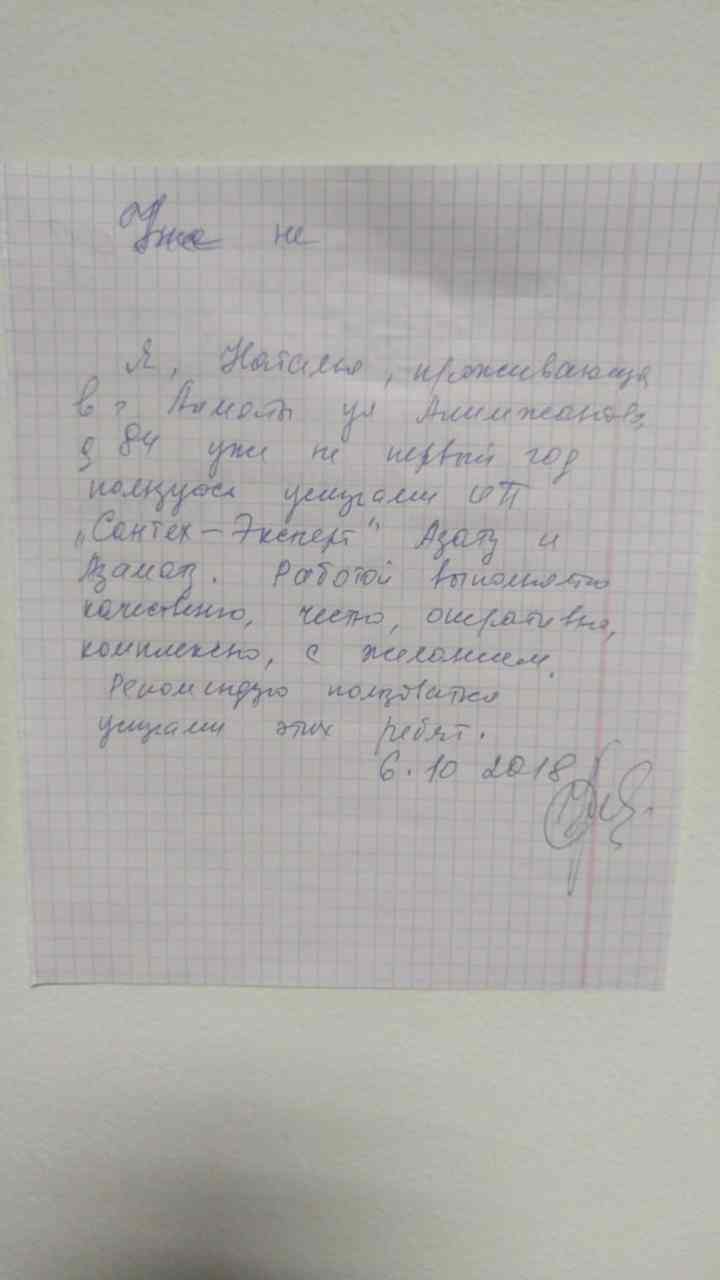 Уже не
Я, Наталья, проживающая
в г Алматы ул Алимжанова,
д 84 уже не первый год
пользуюсь услугами ИП
„Сантех-Эксперт" Азату и
Азамату. Работой выполнято
качественно, честно, оперативно,
комплексно, с желанием.
Рекомендую пользоваться
услугами этих ребят.
6.10 2018